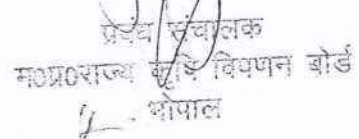 प्रबंध संचालक
म०प्र०राज्य कृषि विपणन बोर्ड
भोपाल